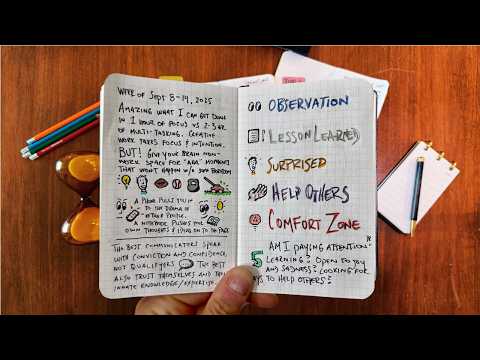 WEEK OF SEPT 8-14, 2025
AMAZING WHAT I CAN GET DONE
IN 1 HOUR OF FOCUS VS 2-3 HR
OF MULTI-TASKING. CREATIVE
WORK TAKES FOCUS & INTENTION.
BUT! GIVE YOUR BRAIN NON-
WORK SPACE FOR "AHA" MOMENTS
THAT WON'T HAPPEN W/O SOME BOREDOM
A PHONE PULLS YOU IN
TO THE DRAMA OF
OTHER PEOPLE.
A NOTEBOOK PUSHES YOUR
OWN THOUGHTS & IDEAS ON TO THE PAGE
THE BEST COMMUNICATORS SPEAK
WITH CONVICTION AND CONFIDENCE,
NOT QUALIFIERS THE BEST
ALSO TRUST THEMSELVES AND THEIR
INNATE KNOWLEDGE/EXPERTISE.
OBSERVATION
LESSON LEARNED
SURPRISED
HELP OTHERS
COMFORT ZONE
5 AM I PAYING ATTENTION?
LEARNING? OPEN TO JOY
AND SADNESS? LOOKING FOR
WAYS TO HELP OTHERS?